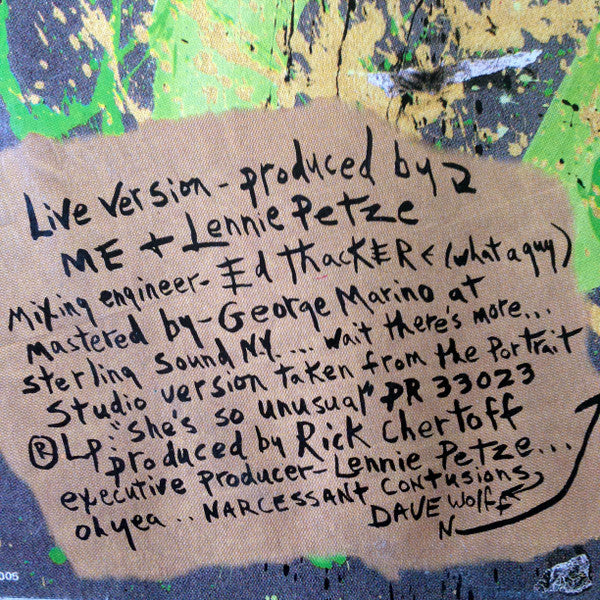 Live Version - produced by
ME + Lennie Petze
Mixing engineer - Ed thackER < (what a guy)
mastered by - George Marino at
sterling Sound N.Y. ... wait there's more...
Studio version taken from the Portrait
® LP: "She's so unusual" PR 33023
produced by Rick Chertoff
executive producer - Lennie Petze...
oh yea .. NARCESSANT CONTUSIONS
DAVE Wolff
N
005